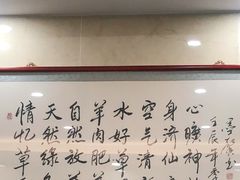 壬辰年
心曠神
身济仙
空气清
水好草
羊肉肥
自然放
天然绿
情忆草